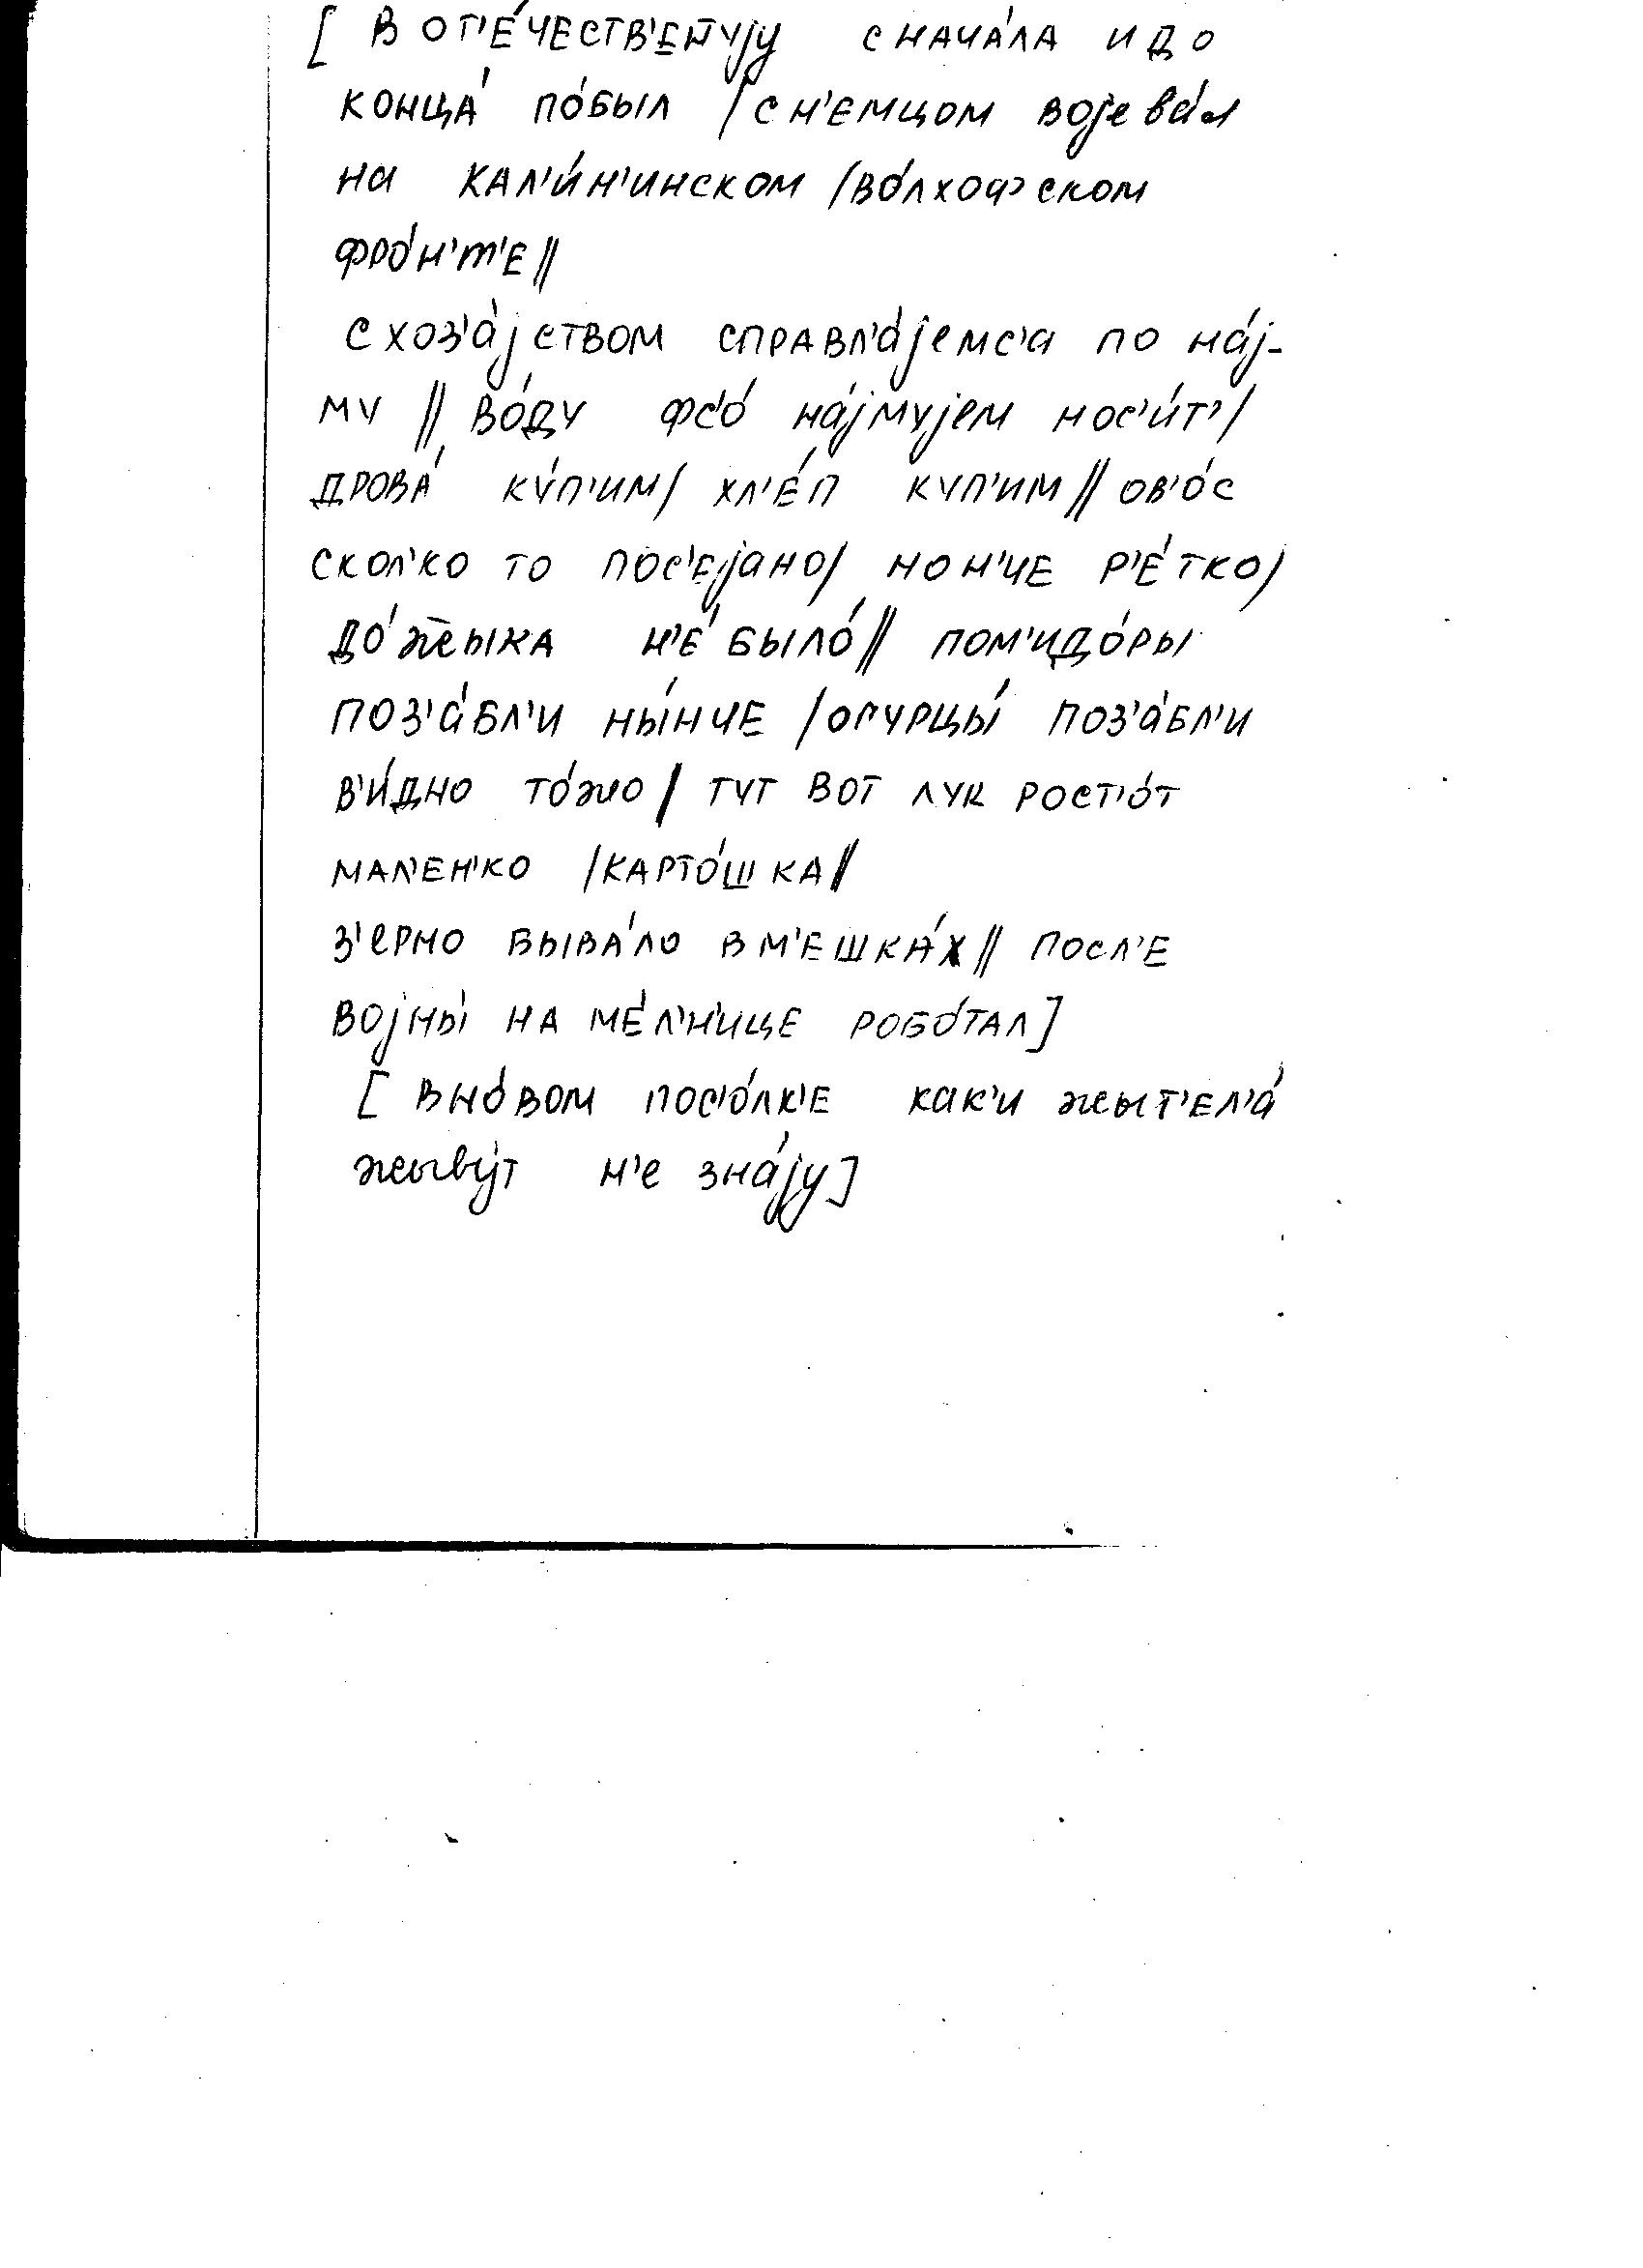 [ в от'е́честв'ен̄уjу снача́ла и до
конца́ по́был / с н'емцом воjева́л
на кал'и́н'инском / во́лховском
фро́н'т'е //
с хоз'а́jством справл'а́jемс'а по на́j-
му // во́ду фс'о́ на́jмуjем нос'и́т' /
дрова́ ку́п'им / хл'е́п куп'им // ов'о́с
скол'ко то пос'еjано / нон'че р'е́тко /
до́ж̄ыка н'е́ было́ // пом'идо́ры
поз'а́бл'и ны́нче / огурцы́ поз'а́бл'и
в'и́дно то́жо / тут вот лук рост'о́т
мал'ен'ко / карто́шка //
з'ерно быва́ло в м'ешка́х // посл'е
воjны́ на ме́л'н'ице робо́тал ]
[ в но́вом пос'о́лк'е как'и жыт'ел'а́
жыву́т н'е зна́jу ]